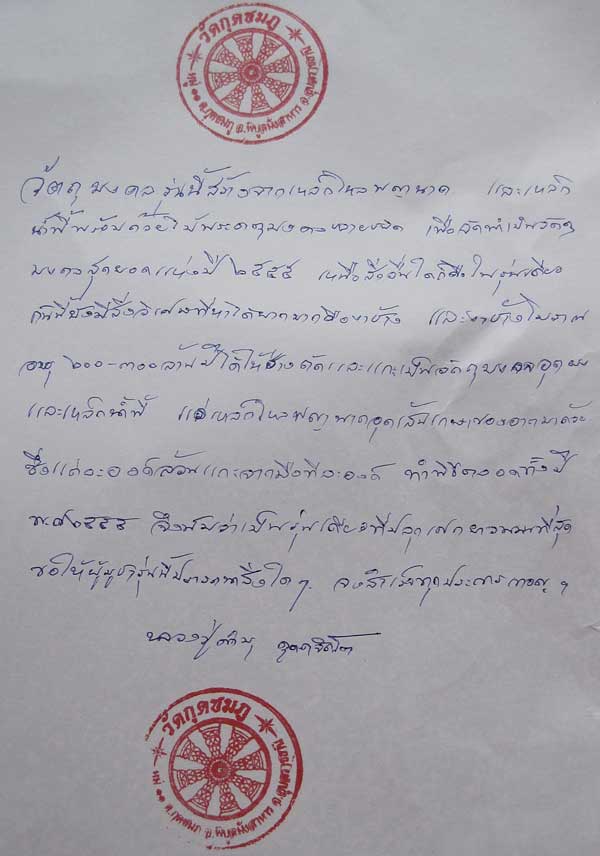 วัดกุดชมภู
หมู่ ๑๑ ต.กุดชมภู อ.พิบูลมังสาหาร จ.อุบลราชธานี
วัตถุมงคลรุ่นนี้สร้างจากเหล็กไหลพญานาค และเหล็ก
น้ำพี้พร้อมด้วย พระธาตุ หลายชนิด เพื่อจัดทำเป็นวัตถุ
มงคลสุดยอดแห่งปี ๒๕๕๕ เหนือสิ่งอื่นใดก็คือในรุ่นเดียว
กันนี้ยังมีสิ่งวิเศษที่หาได้ยากมากคืองาช้าง และงาช้างโบราณ
อายุ ๒๐๐-๓๐๐ล้านปีได้ให้ช่างตัดและแกะเป็นวัตถุมงคลอุดผง
และเหล็กน้ำพี้ แร่เหล็กไหลพญานาคอุดเส้นเกษาของอาตมาด้วย
ซึ่งแต่ละองค์ล้วนแกะจากมือทีละองค์ ทำพิธีตลอดทั้งปี
พ.ศ.๒๕๕๕ จึงนับว่าเป็นรุ่นเดียวที่ปลุกเสกยาวนานที่สุด
ขอให้ผู้บูชารุ่นนี้ปรารถนาสิ่งใดๆ จงสำเร็จทุกประการ
หลวงปู่คำบุ คุตฺตจิตฺโต
วัดกุดชมภู
หมู่ ๑๑ ต.กุดชมภู อ.พิบูลมังสาหาร จ.อุบลราชธานี